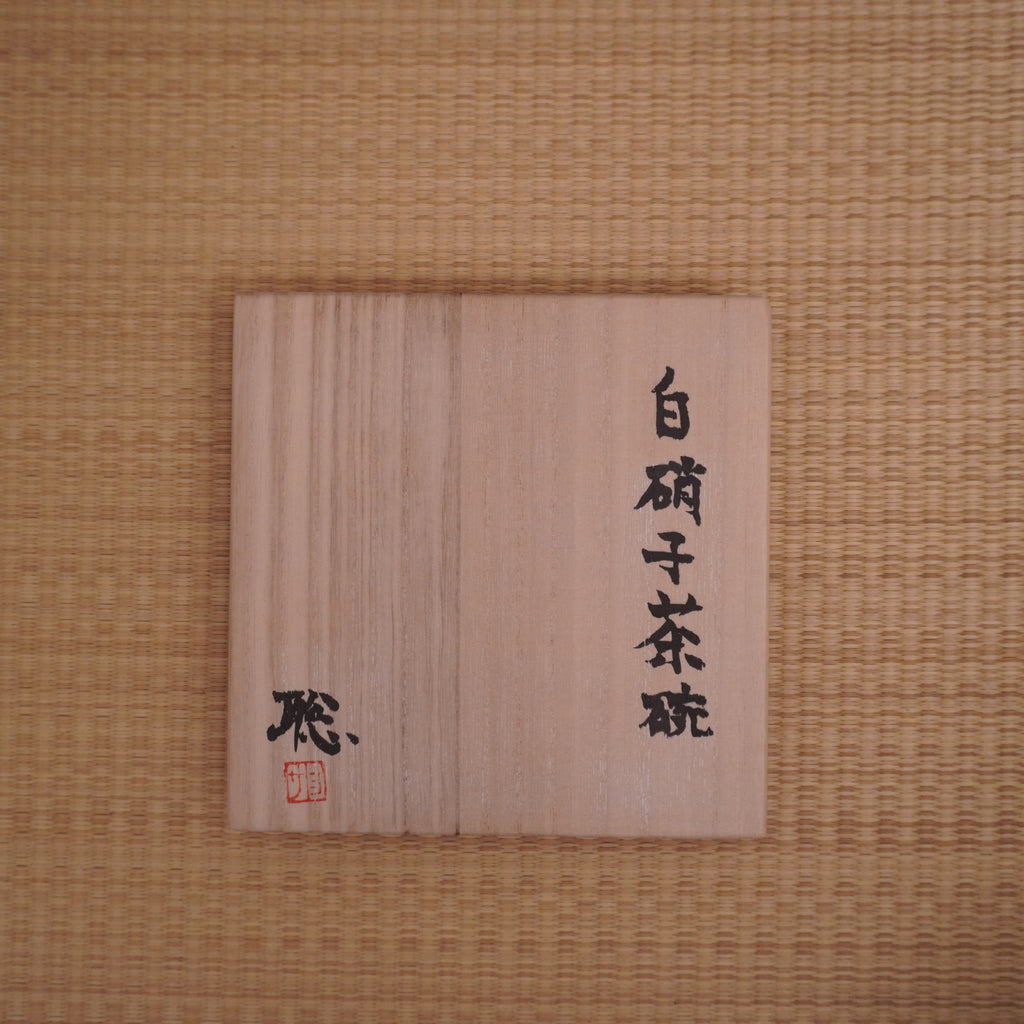 白硝子茶碗
聡